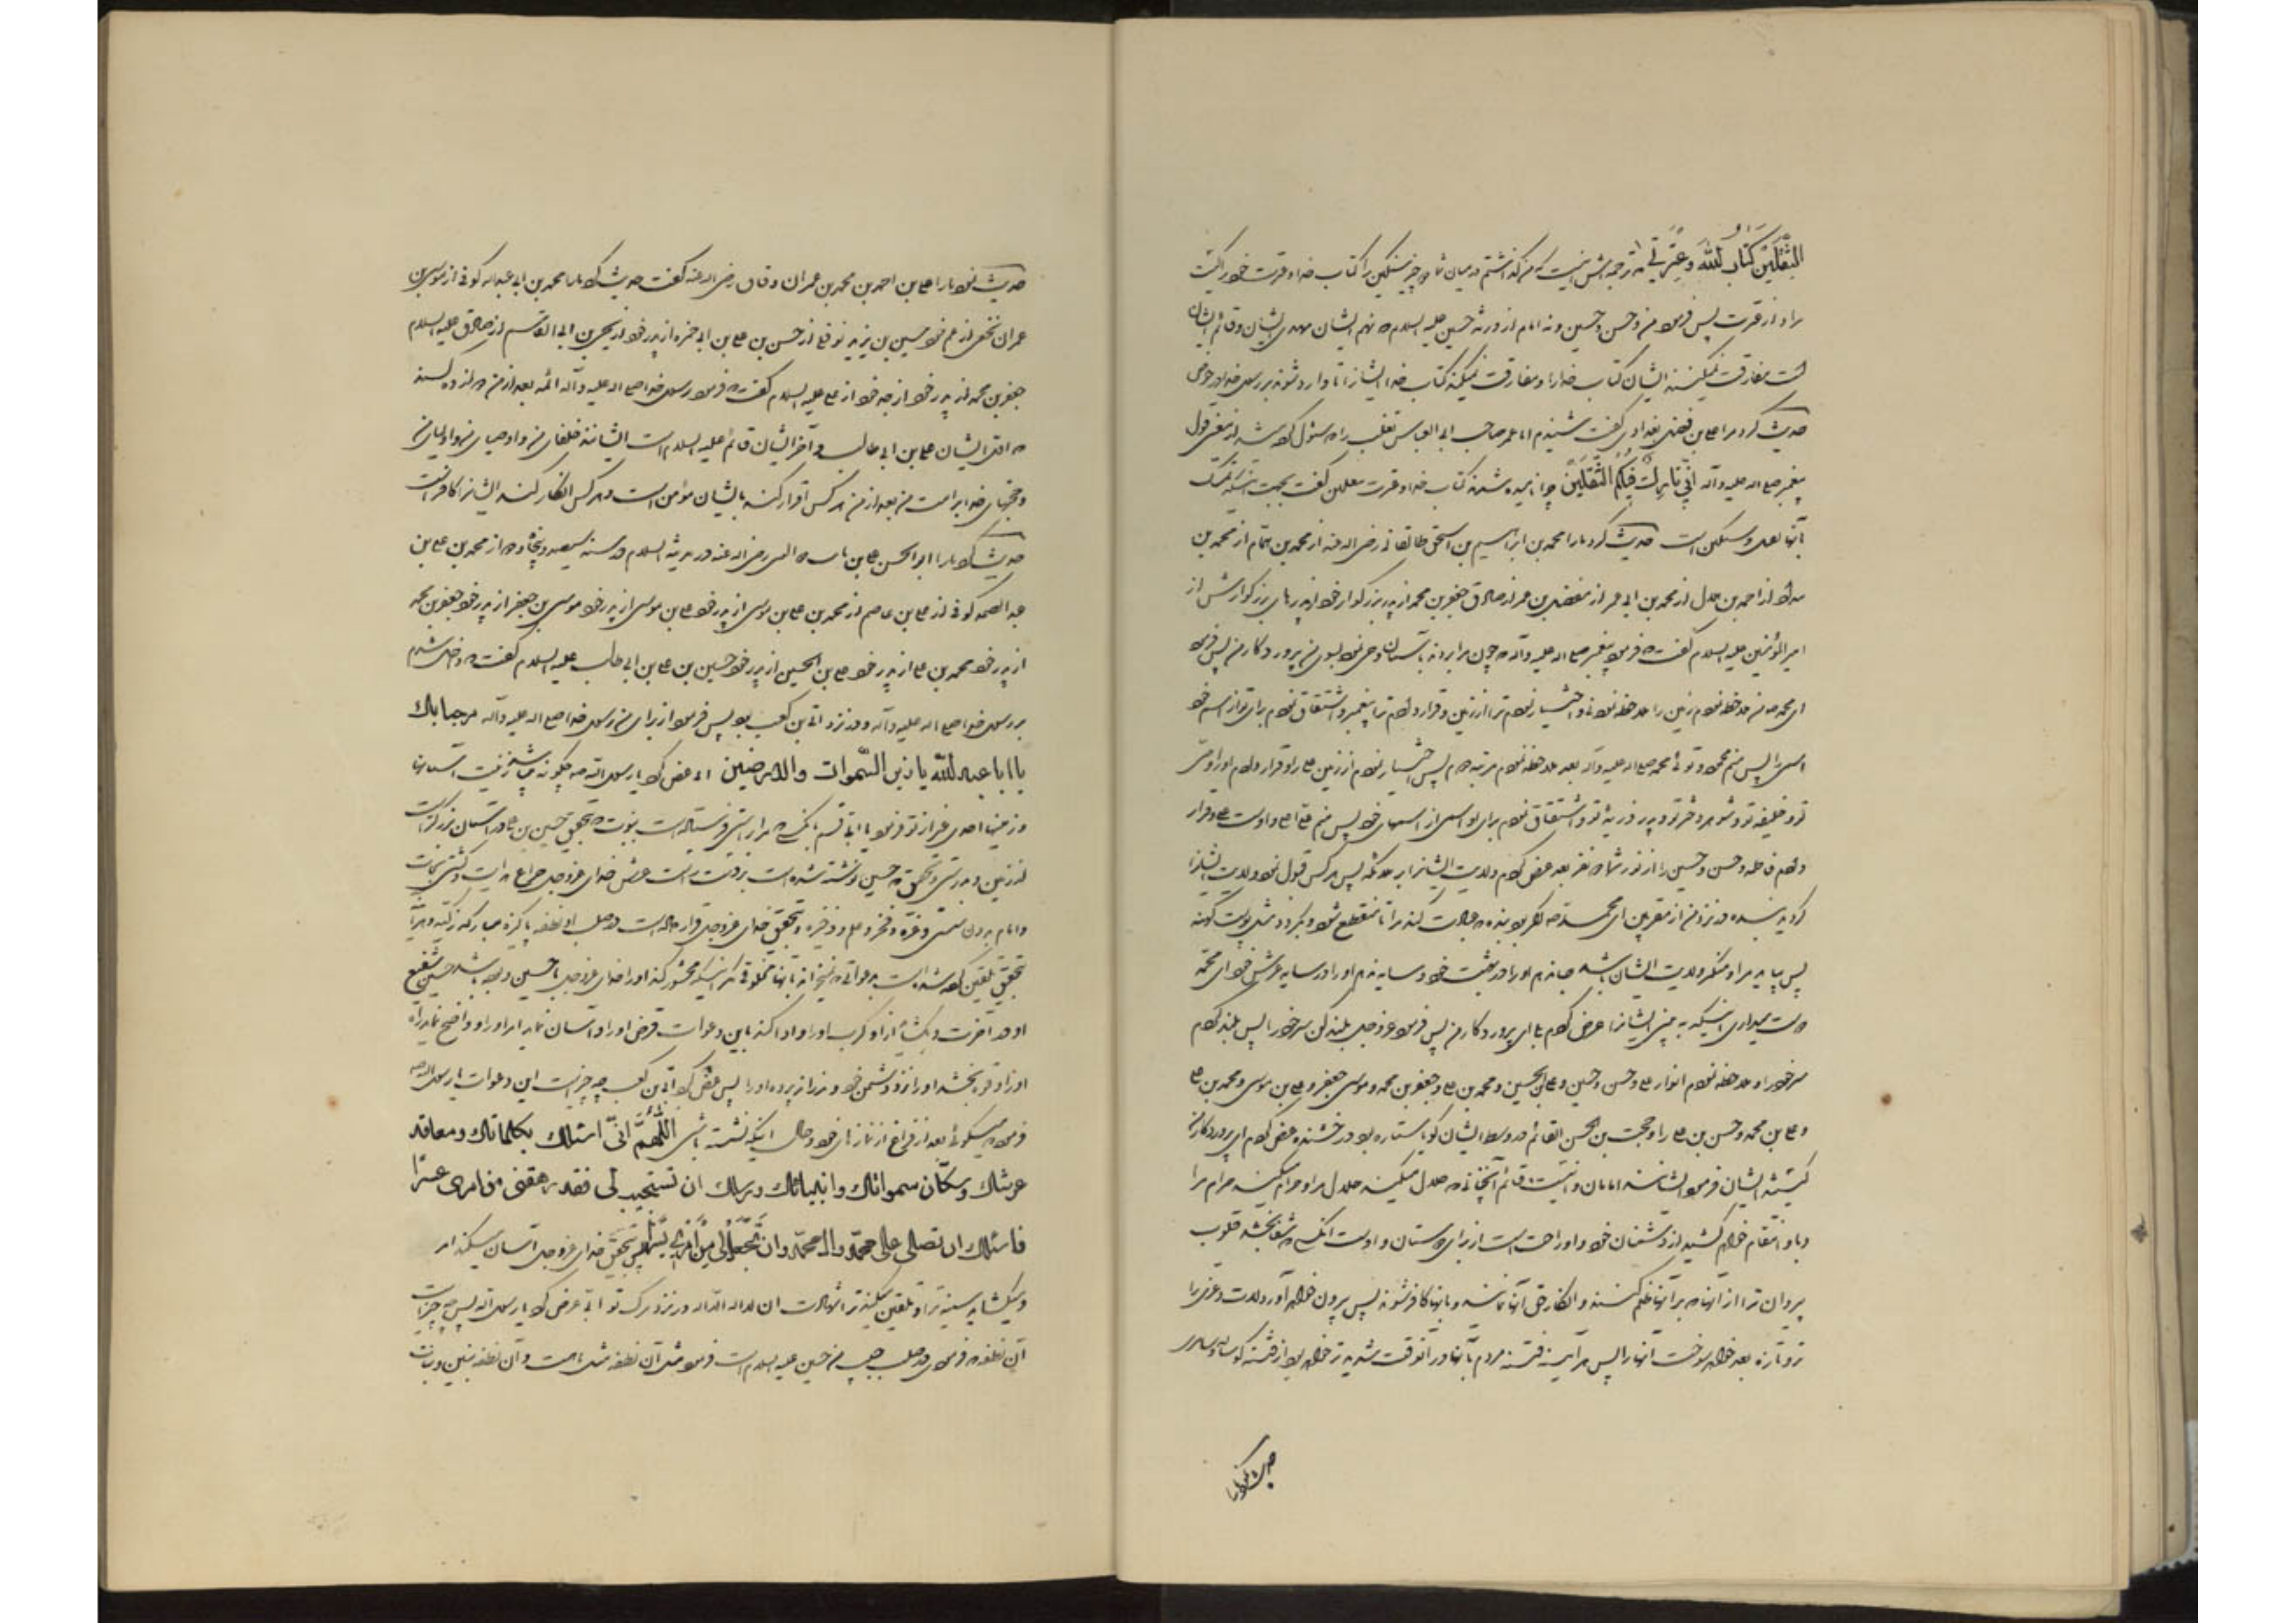 الثقلین کتاب الله و عترتی که ترجمه‌اش اینست که من گذاشتم در میان شما دو چیز سنگین را کتاب خدا و عترت خود را کیست
مراد از عترت پس فرمود من و حسن و حسین و نه امام از ذریه حسین علیه السلام که نهم ایشان مهدی ایشان و قائم ایشان
است مفارقت نمیکنند ایشان کتاب خدا را و مفارقت نمیکند کتاب خدا ایشانرا تا وارد شوند بر رسول خدا در حوض
حدیث کرد مرا علی بن فضل بغدادی گفت شنیدم ابا عمر صاحب ابی العباس تغلب را که سئوال کرده شد از معنی قول
پیغمبر صلی الله علیه و آله انی تارک فیکم الثقلین چرا نامیده شدند کتاب خدا و عترت بثقلین گفت بجهت اینکه تمسک
بآنها ثقیل و سنگین است حدیث کرد ما را محمد بن ابراهیم بن اسحق طالقانی رضی الله عنه از محمد بن همام از محمد بن
از احمد بن هلال از محمد بن ابی عمیر از مفضل بن عمر از صادق جعفر بن محمد از پدر بزرگوار خود از پدرهای بزرگوارش از
امیر المؤمنین علیه السلام گفت که فرمود پیغمبر صلی الله علیه و آله که چون مرا بردند بآسمان وحی نمود بسوی من پروردگار من پس فرمود
ای محمد من ملاحظه نمودم زمین را ملاحظه نمودنی و اختیار نمودم ترا از زمین و قرار دادم ترا پیغمبر و اشتقاق نمودم برای تو از اسم خود
اسمی را پس منم محمود و توئی محمد صلی الله علیه و آله بعد ملاحظه نمودم مرتبه دوم پس اختیار نمودم از زمین علی را و قرار دادم او را وصی
تو و خلیفه تو و شوهر دختر تو و پدر ذریه تو و اشتقاق نمودم برای او اسمی از اسمهای خود پس منم علی اعلی و اوست علی و قرار
دادم فاطمه و حسن و حسین را از نور شما دو نفر بعد عرض کردم ولایت ایشانرا بر ملائکه پس هر کس قبول نمود ولایت ایشانرا
گردید بنده در نزد من از مقربین ای محمد اگر بوده بنده که عبادت کند مرا تا منقطع شود و بگردد مثل پوست کهنه
پس بیاید مرا و منکر ولایت ایشان باشد جا ندهم او را در بهشت خود و سایه ندهم او را در سایه عرش خود ای محمد
دوست میداری اینکه به بینی ایشانرا عرض کردم بلی ای پروردگار من پس فرمود عزوجل بلند کن سر خود را پس بلند کردم
سر خود را و ملاحظه نمودم انوار علی و حسن و حسین و علی بن الحسین و محمد بن علی و جعفر بن محمد و موسی بن جعفر و علی بن موسی و محمد بن علی
و علی بن محمد و حسن بن علی را و حجت بن الحسن القائم در وسط ایشان گویا ستاره بود درخشنده عرض کردم ای پروردگار من
کیستند ایشان فرمود ایشانند امامان و اینست قائم آنچنانی که حلال میکند حلال مرا و حرام میکند حرام مرا
و باو انتقام خواهم کشید از دشمنان خود و او راحت است از برای دوستان و اوست آنکسیکه شفا بخشد قلوب
پیروان ترا از آنها که بر آنها ظلم کنند و انکار حق آنها نمایند و بآنها کافر شوند پس بیرون خواهد آورد لات و عزی را
تر و تازه بعد خواهد سوخت آنها را پس هر آینه فتنه مردم بآنها در آنوقت شدیدتر خواهد بود از فتنه گوساله و سامری
حدیث نمود ما را
حدیث نمود ما را علی بن احمد بن محمد بن عمران دقاق رضی الله عنه گفت حدیث کرد ما را محمد بن ابی عبدالله کوفی از موسی بن
عمران نخعی از عم خود حسین بن یزید نوفلی از حسن بن علی بن ابی حمزه از پدر خود از یحیی بن ابی القاسم از صادق علیه السلام
جعفر بن محمد از پدر خود از جد خود از علی علیه السلام گفت که فرمود رسول خدا صلی الله علیه و آله ائمه بعد از من دوازده کسند
که اول ایشان علی بن ابی طالب و آخر ایشان قائم علیه السلام است ایشانند خلفای من و اوصیای من و اولیای من
و حجتهای خدا بر امت من بعد از من هر کس اقرار کند بایشان مؤمن است و هر کس انکار کند ایشانرا کافر است
حدیث کرد ما را ابو الحسن علی بن ثابت رضی الله عنه در مدینة السلام در سنه سیصد و پنجاه و دو از محمد بن علی بن
عبد الصمد کوفی از علی بن عاصم از محمد بن علی بن موسی از پدر خود علی بن موسی از پدر خود موسی بن جعفر از پدر خود جعفر بن محمد
از پدر خود محمد بن علی از پدر خود علی بن الحسین از پدر خود حسین بن علی بن ابی طالب علیه السلام گفت که داخل شدم
بر رسول خدا صلی الله علیه و آله و در نزد ابی بن کعب بود پس فرمود از برای من رسول خدا صلی الله علیه و آله مرحبا بک
یا ابا عبد الله یا زین السموات و الارضین ابی عرض کرد یا رسول الله چگونه میباشد زینت آسمانها
و زمینها احدی غیر از تو فرمود یا ابی قسم بآنکسیکه مرا براستی فرستاده است بنبوت که بتحقیق حسین بن علی در آسمان بزرگتر است
از زمین و بدرستی و تحقیق که حسین نوشته شده است بر طرف راست عرش خدای عزوجل چراغ هدایت و کشتی نجات
و امام بدون سستی و عزه و فخر و علم و ذخیره و بتحقیق خدای عزوجل قرار داده است در صلب او نطفه پاکیزه مبارکه زکیه و هر آینه
بتحقیق تلقین کرده شده است بدعواتی که نمیخواند بآنها مخلوقی مگر اینکه محشور کند او را خدای عزوجل با حسین و بوده باشد حسین شفیع
او در آخرت و بگشاید از او کرب او را و ادا کند باین دعوات قرض او را و آسان نماید امر او را و واضح نماید راه
او را و قوه بخشد او را نزد دشمن خود و ندراند پرده او را پس عرض کرد ابی بن کعب چه چیز است این دعوات یا رسول الله
فرمود میگوئی بعد از فراغ از نمازهای خود و حال اینکه نشسته باشی اللهم انی اسئلک بکلماتک و معاقد
عرشک و سکان سمواتک و انبیائک و رسلک ان تستجیب لی فقد رهقنی من امری عسرا
فاسئلک ان تصلی علی محمد و آل محمد و ان تجعل لی من امری یسرا پس بتحقیق خدای عزوجل آسان میکند امر
و میگشاید سینه ترا و تلقین میکند ترا شهادت ان لا اله الا الله در نزد مرگ تو ابی عرض کرد یا رسول الله پس چه چیز است
آن نطفه فرمود در صلب حبیب من حسین علیه السلام است فرمود مثل آن نطفه مثل ماه است و آن نطفه بنین و بنات